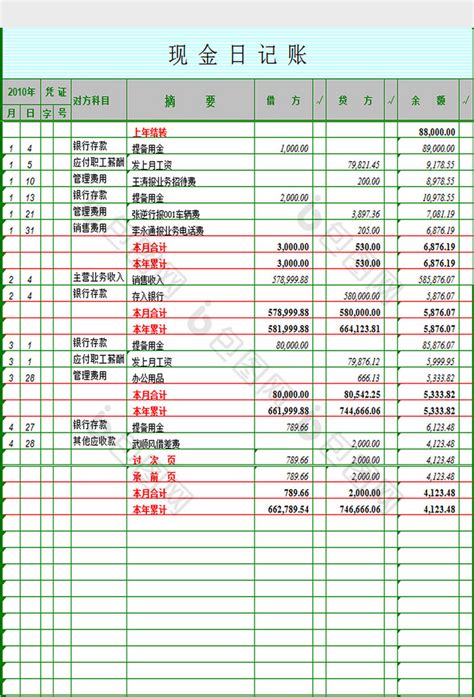 现金日记账
2010年 凭证 对方科目 摘要 借方 √ 贷方 √ 余额 √
月 日 字 号
上年结转 88,000.00
1 4 银行存款 提备用金 1,000.00 89,000.00
1 5 应付职工薪酬 发上月工资 79,821.45 9,178.55
1 10 管理费用 王涛报业务招待费 200.00 8,978.55
1 13 银行存款 提备用金 2,000.00 10,978.55
1 21 管理费用 张逆行报001车辆费 3,897.36 7,081.19
1 31 销售费用 李永通报业务电话费 205.00 6,876.19
本月合计 3,000.00 530.00 6,876.19
本年累计 3,000.00 530.00 6,876.19
2 4 主营业务收入 销售收入 578,999.88 585,876.07
2 4 银行存款 存入银行 580,000.00 5,876.07
本月合计 578,999.88 580,000.00 5,876.07
本年累计 581,999.88 664,123.81 5,876.07
3 1 银行存款 提备用金 80,000.00 85,876.07
3 1 应付职工薪酬 发上月工资 79,876.12 5,999.95
3 28 管理费用 办公用品 666.13 5,333.82
本月合计 80,000.00 80,542.25 5,333.82
本年累计 661,999.88 744,666.06 5,333.82
4 27 银行存款 提备用金 789.66 6,123.48
4 28 其他应收款 武顺风借差费 2,000.00 4,123.48
过次页 789.66 2,000.00 4,123.48
承前页 789.66 2,000.00 4,123.48
本月合计 789.66 2,000.00 4,123.48
本年累计 662,789.54 746,666.06 4,123.48
包图网
包图网
包图网
包图网